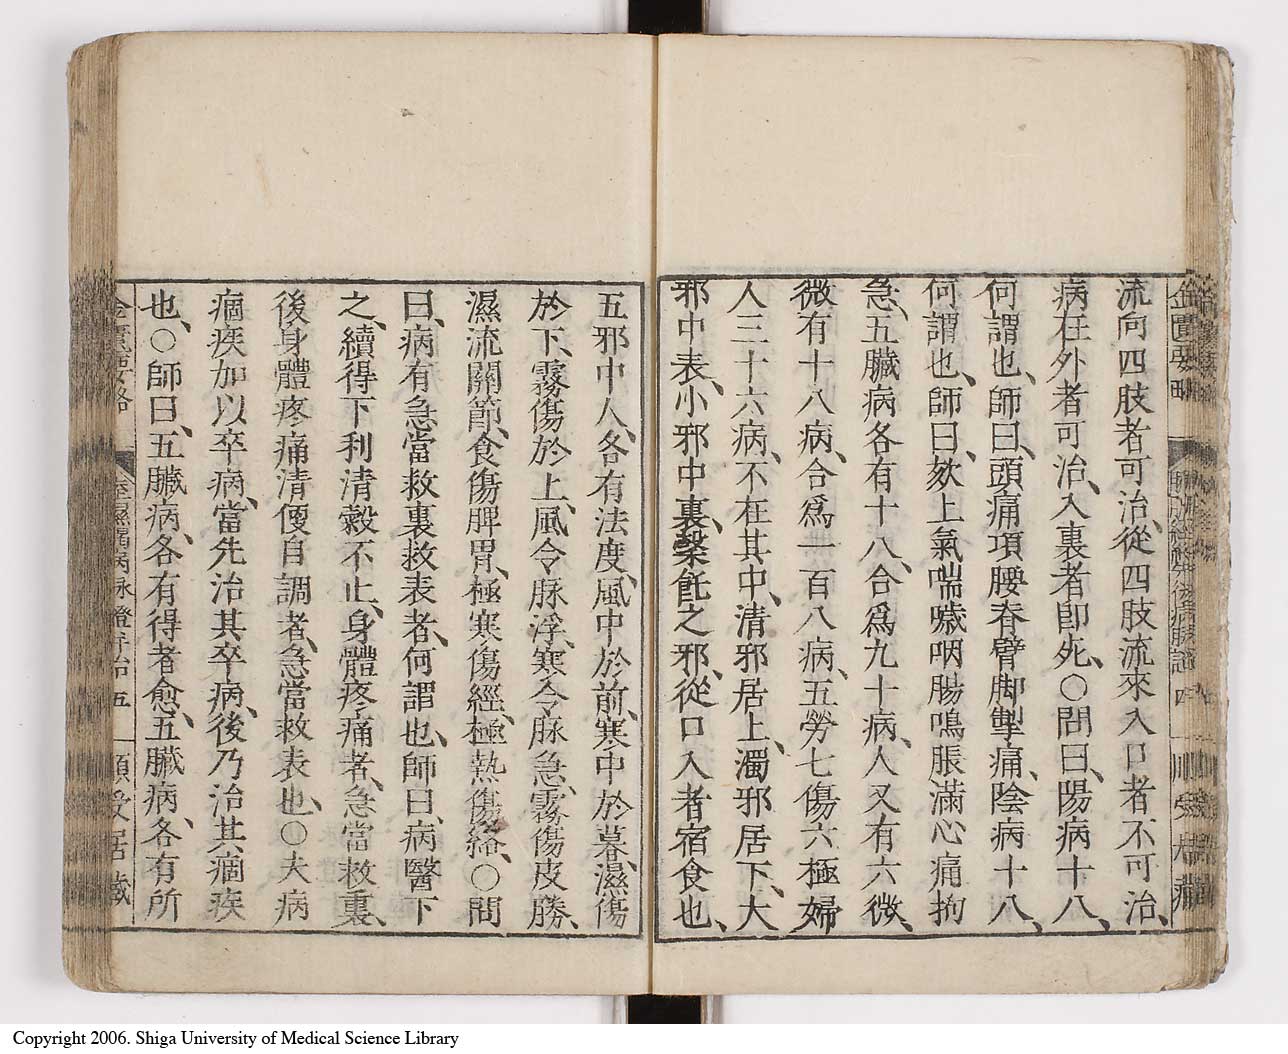 流向四肢者可治、從四肢流來入口者不可治、
病在外者可治、入裏者卽死、○問曰、陽病十八、
何謂也、師曰、頭痛項腰脊臂脚掣痛、陰病十八、
何謂也、師曰、欬上氣喘噦咽腸鳴脹滿心痛拘
急、五臟病各有十八、合爲九十病、人又有六微、
微有十八病、合爲一百八病、五勞七傷六極婦
人三十六病、不在其中、清邪居上、濁邪居下、大
邪中表、小邪中裏、䅽飥之邪、從口入者宿食也、
五邪中人、各有法度、風中於前、寒中於暮、濕傷
於下、霧傷於上、風令脉浮、寒令脉急、霧傷皮膚、
濕流關節、食傷脾胃、極寒傷經、極熱傷絡、○問
曰、病有急當救裏救表者、何謂也、師曰、病醫下
之、續得下利清穀不止、身體疼痛者、急當救裏、
後身體疼痛清便自調者、急當救表也、○夫病
痼疾加以卒病、當先治其卒病、後乃治其痼疾
也、○師曰、五臟病、各有得者愈、五臟病、各有所
金匱要略
四
金匱要略
痙濕暍病脉證并治 五
Copyright 2006. Shiga University of Medical Science Library